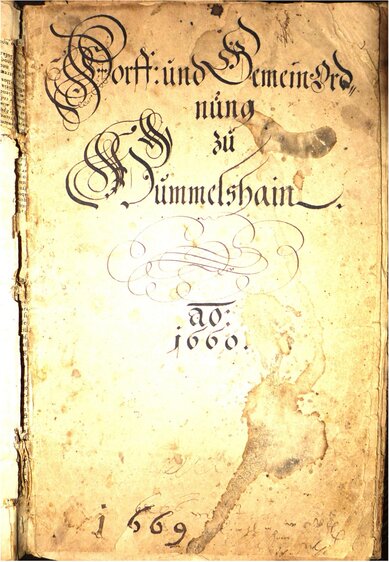 Dorff: und Gemein-Ord„
nüng
zü
Hümmelshain.
ao:
1660.
1669